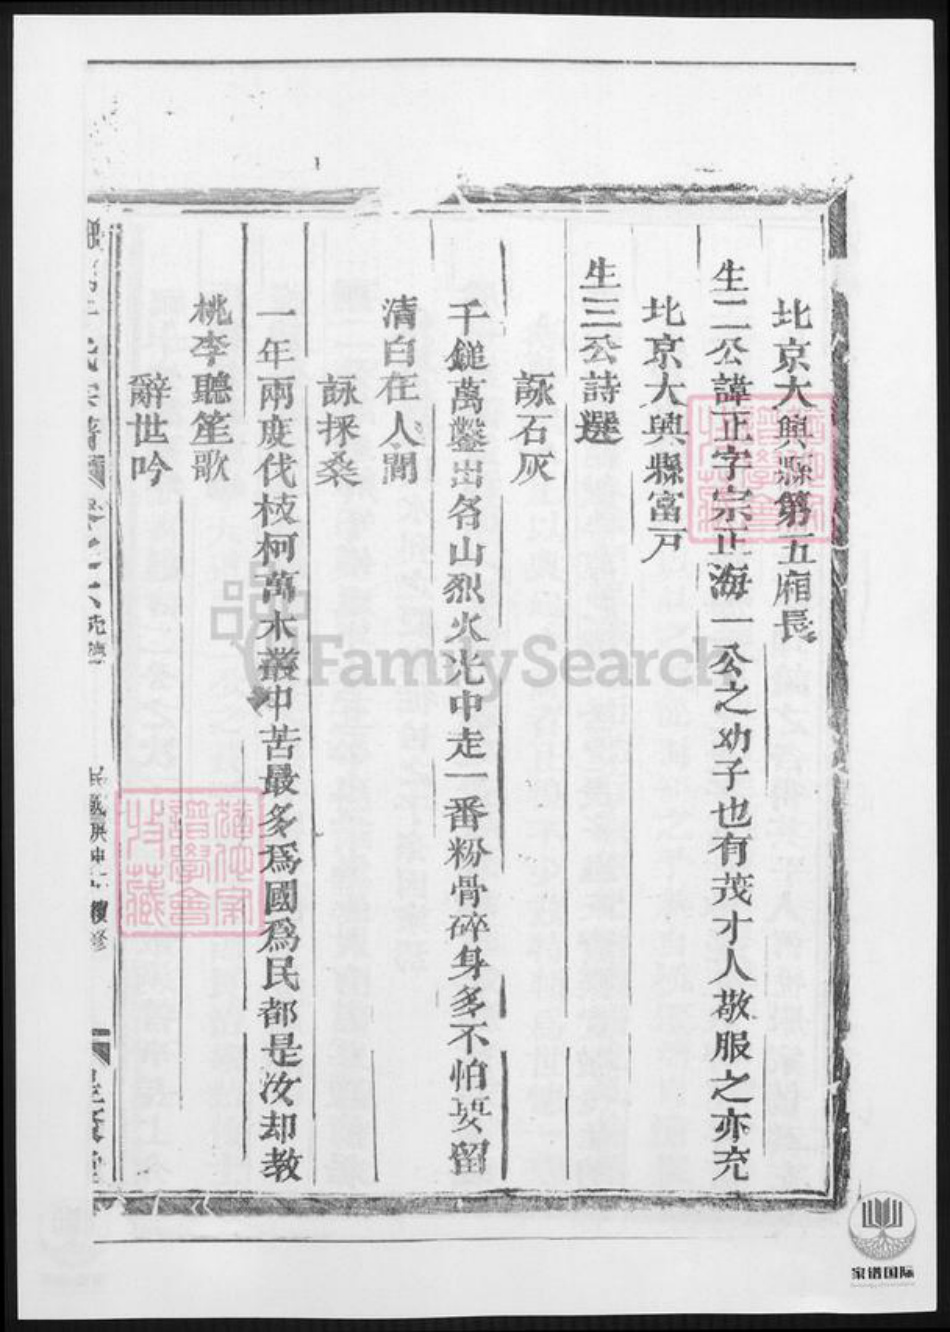 北京大興縣第五廂長
生二公諱正字宗正海一公之幼子也有茂才人敬服之亦充
北京大興縣富戸
生三公詩選
詠石灰
千鎚萬鑿出各山烈火光中走一番粉骨碎身多不怕要留
清白在人間
詠採桑
一年兩度伐枝柯萬木叢中苦最多爲國爲民都是汝却教
桃李聽笙歌
辭世吟
民國庚申六修
FamilySearch
家谱国际